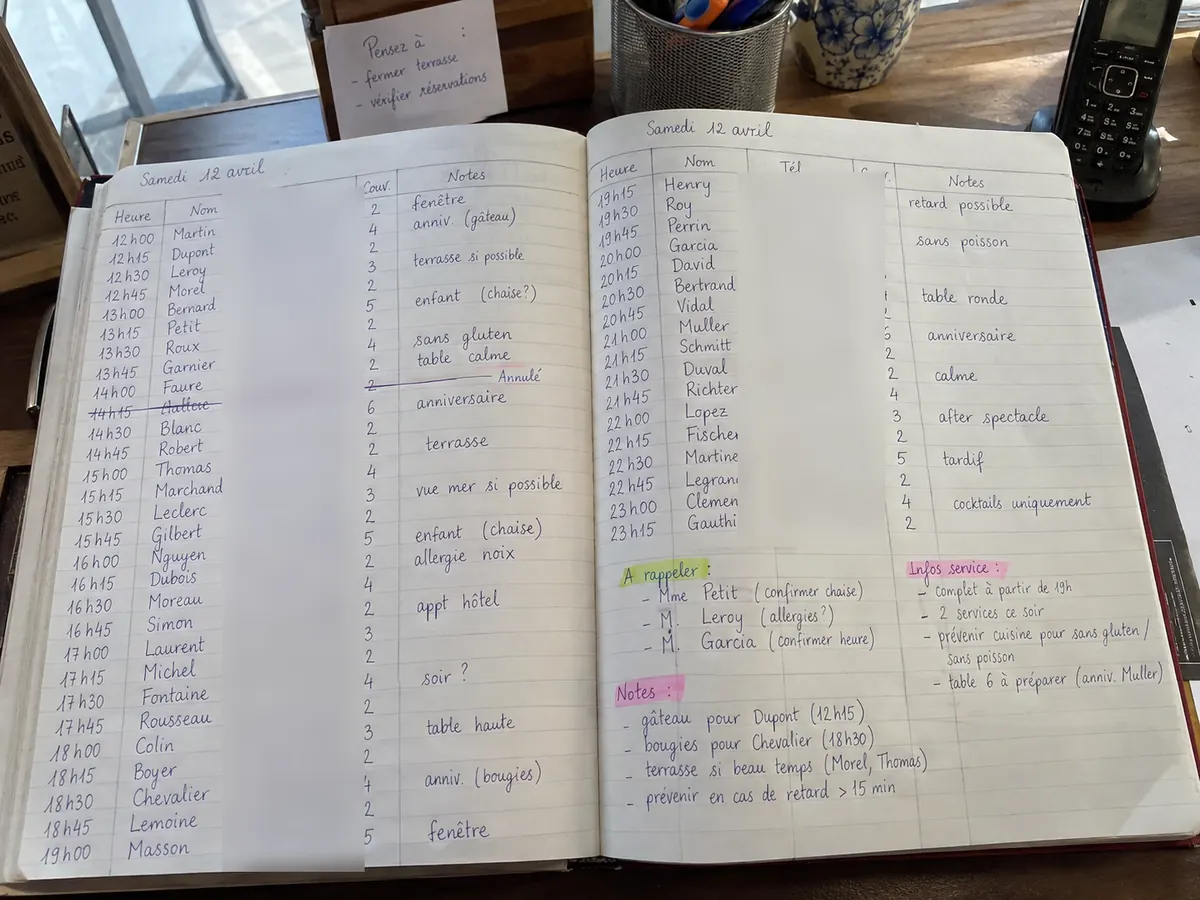 Pensez à :
- fermer terrasse
- vérifier réservations
Samedi 12 avril
Heure Nom Couv. Notes
12h00 Martin 2 fenêtre
12h15 Dupont 4 anniv. (gâteau)
12h30 Leroy 2
12h45 Morel 3 terrasse si possible
13h00 Bernard 2
13h15 Petit 5 enfant (chaise?)
13h30 Roux 2
13h45 Garnier 4 sans gluten
14h00 Faure 2 table calme
14h15 2 Annulé
14h30 Blanc 6 anniversaire
14h45 Robert 2
15h00 Thomas 2 terrasse
15h15 Marchand 4
15h30 Leclerc 3 vue mer si possible
15h45 Gilbert 2
16h00 Nguyen 5 enfant (chaise)
16h15 Dubois 2 allergie noix
16h30 Moreau 4
16h45 Simon 2 appt hôtel
17h00 Laurent 3
17h15 Michel 2
17h30 Fontaine 4 soir ?
17h45 Rousseau 2
18h00 Colin 3 table haute
18h15 Boyer 2
18h30 Chevalier 4 anniv. (bougies)
18h45 Lemoine 2
19h00 Masson 5 fenêtre
Samedi 12 avril
Heure Nom Tél Notes
19h15 Henry retard possible
19h30 Roy
19h45 Perrin sans poisson
20h00 Garcia
20h15 David
20h30 Bertrand table ronde
20h45 Vidal
21h00 Muller anniversaire
21h15 Schmitt 2
21h30 Duval 2 calme
21h45 Richter 4
22h00 Lopez 3 after spectacle
22h15 Fischer 2
22h30 Martine 5 tardif
22h45 Legran 2
23h00 Clemen 4 cocktails uniquement
23h15 Gauthi 2
A rappeler :
- Mme Petit (confirmer chaise)
- M. Leroy (allergies?)
- M. Garcia (confirmer heure)
Notes :
- gâteau pour Dupont (12h15)
- bougies pour Chevalier (18h30)
- terrasse si beau temps (Morel, Thomas)
- prévenir en cas de retard > 15 min
Infos service :
- complet à partir de 19h
- 2 services ce soir
- prévenir cuisine pour sans gluten /
sans poisson
- table 6 à préparer (anniv. Muller)